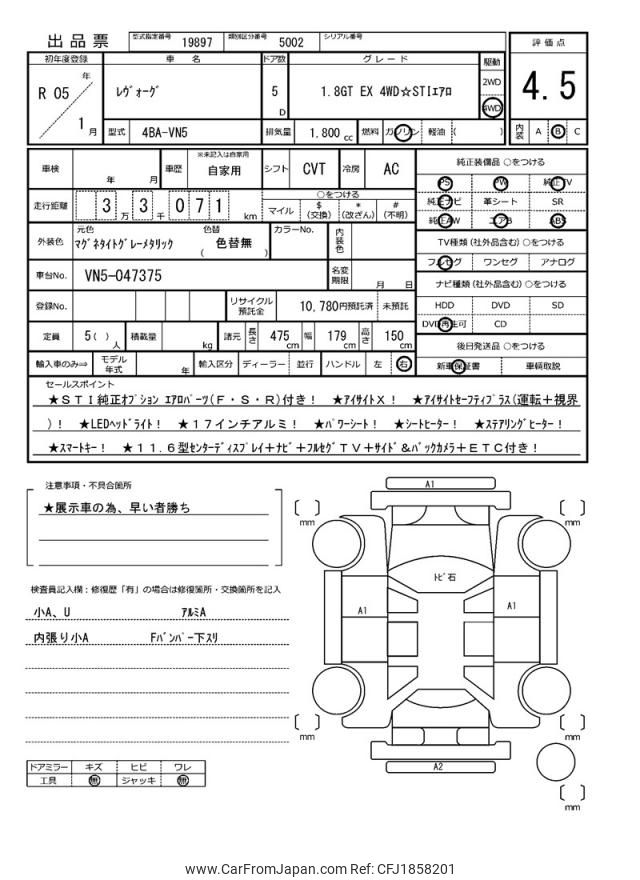 出品票 型式指定番号 19897 類別区分番号 5002 シリアル番号
評価点
4.5
内装 A B C
初年度登録 車名 ドア数 グレード 駆動
R 05 年 1 月
ﾚｳﾞｫｰｸﾞ 5 D 1.8GT EX 4WD☆STIｴｱﾛ 2WD 4WD
型式 4BA-VN5 排気量 1.800 cc 燃料 ガソリン 軽油 ( )
車検 年 月 車歴 ※未記入は自家用 自家用 シフト CVT 冷房 AC
走行距離 3 万 3 千 071 km
○をつける
マイル $(交換) *(改ざん) #(不明)
外装色 元色 ﾏｸﾞﾈﾀｲﾄｸﾞﾚｰﾒﾀﾘｯｸ 色替 ( 色替無 ) カラーNo. 内装色
車台No. VN5-047375 名変期限 月 日
登録No. リサイクル預託金 10,780円預託済 未預託
定員 5( ) 人 積載量 kg 諸元 長さ 475 cm 幅 179 cm 高さ 150 cm
輸入車のみ⇒ モデル年式 年 輸入区分 ディーラー 並行 ハンドル 左 右
純正装備品 ○をつける
PS PW 純正TV
純正ナビ 革シート SR
純正AW エアB ABS
TV種類 (社外品含む) ○をつける
フルセグ ワンセグ アナログ
ナビ種類 (社外品含む) ○をつける
HDD DVD SD
DVD再生可 CD
後日発送品 ○をつける
新車保証書 車輌取説
セールスポイント
★ＳＴＩ純正ｵﾌﾟｼｮﾝ ｴｱﾛﾊﾟｰﾂ(Ｆ・Ｓ・Ｒ)付き！ ★ｱｲｻｲﾄＸ！ ★ｱｲｻｲﾄｾｰﾌﾃｨﾌﾟﾗｽ(運転＋視界
)！ ★LEDﾍｯﾄﾞﾗｲﾄ！ ★１７インチアルミ！ ★ﾊﾟﾜｰｼｰﾄ！ ★ｼｰﾄﾋｰﾀｰ！ ★ｽﾃｱﾘﾝｸﾞﾋｰﾀｰ！
★ｽﾏｰﾄｷｰ！ ★１１.６型ｾﾝﾀｰﾃﾞｨｽﾌﾟﾚｲ＋ﾅﾋﾞ＋ﾌﾙｾｸﾞＴＶ＋ｻｲﾄﾞ＆ﾊﾞｯｸカメラ＋ＥＴＣ付き！
注意事項・不具合箇所
★展示車の為、早い者勝ち
検査員記入欄：修復歴「有」の場合は修復箇所・交換箇所を記入
小A、U ｱﾙﾐA
内張り小A Fﾊﾞﾝﾊﾟｰ下ｽﾘ
ドアミラー キズ ヒビ ワレ
工具 無 ジャッキ 無
A1
mm
mm
ﾄﾋﾞ石
A1
A1
mm
mm
A2
mm
www.CarFromJapan.com Ref: CFJ1858201